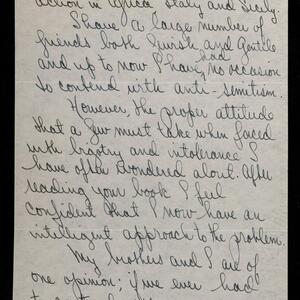 action in Africa Italy and Sicily.
I have a large number of
friends both Jewish and Gentile
and up to now I have had no occasion
to contend with anti-semitism.
However, the proper attitude
that a Jew must take when faced
with bigotry and intolerance I
have often wondered about. After
reading your book I feel
confident that I now have an
intelligent approach to the problem.
My brothers and I are of
one opinion; if we ever had